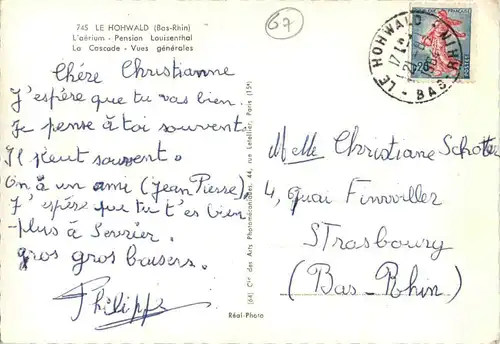 745 LE HOHWALD (Bas-Rhin)
L'aérium - Pension Louisenthal
La Cascade - Vues générales
67
Chére Christianne
J'espère que tu vas bien.
Je pense à toi souvent.
Il pleut souvent.
On à un ami (Jean Pierre),
J'espére que tu t'es bien
-plus à Sevrier.
gros gros baisers.
Philippe
(64) Cie des Arts Photomécaniques, 44, rue Letellier, Paris (15e)
Réal-Photo
LE HOHWALD
BAS-RHIN
Melle Christiane
4, quai Finwiller
STrasbourg
(Bas-Rhin)